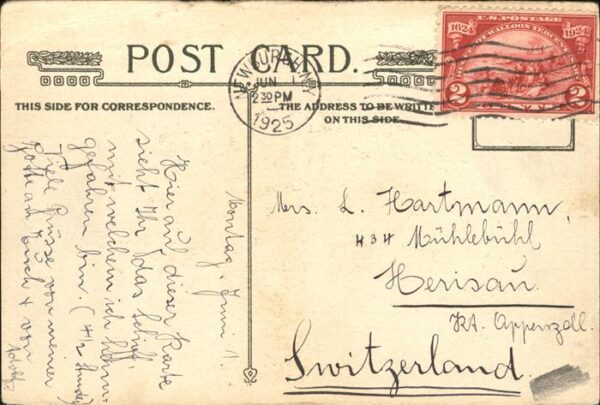 POST CARD.
THIS SIDE FOR CORRESPONDENCE.
THE ADDRESS TO BE WRITTEN
ON THIS SIDE.
NEWBURGH, N.Y.
JUN 1
2 30 PM
1925
U.S. POSTAGE
1624
1924
HUGUENOT WALLOON TERCENTENARY
2
2
Montag, Juni 1.
Hier auf dieser Karte
sieht Ihr das Schiff
mit welchem ich
gefahren bin. (4 1/2 Stunden
Viele Grüsse von meiner
Euch & von
Adolf.
Mrs. L. Hartmann,
434 Mühlebühl
Herisau.
Kt. Appenzell.
Switzerland.